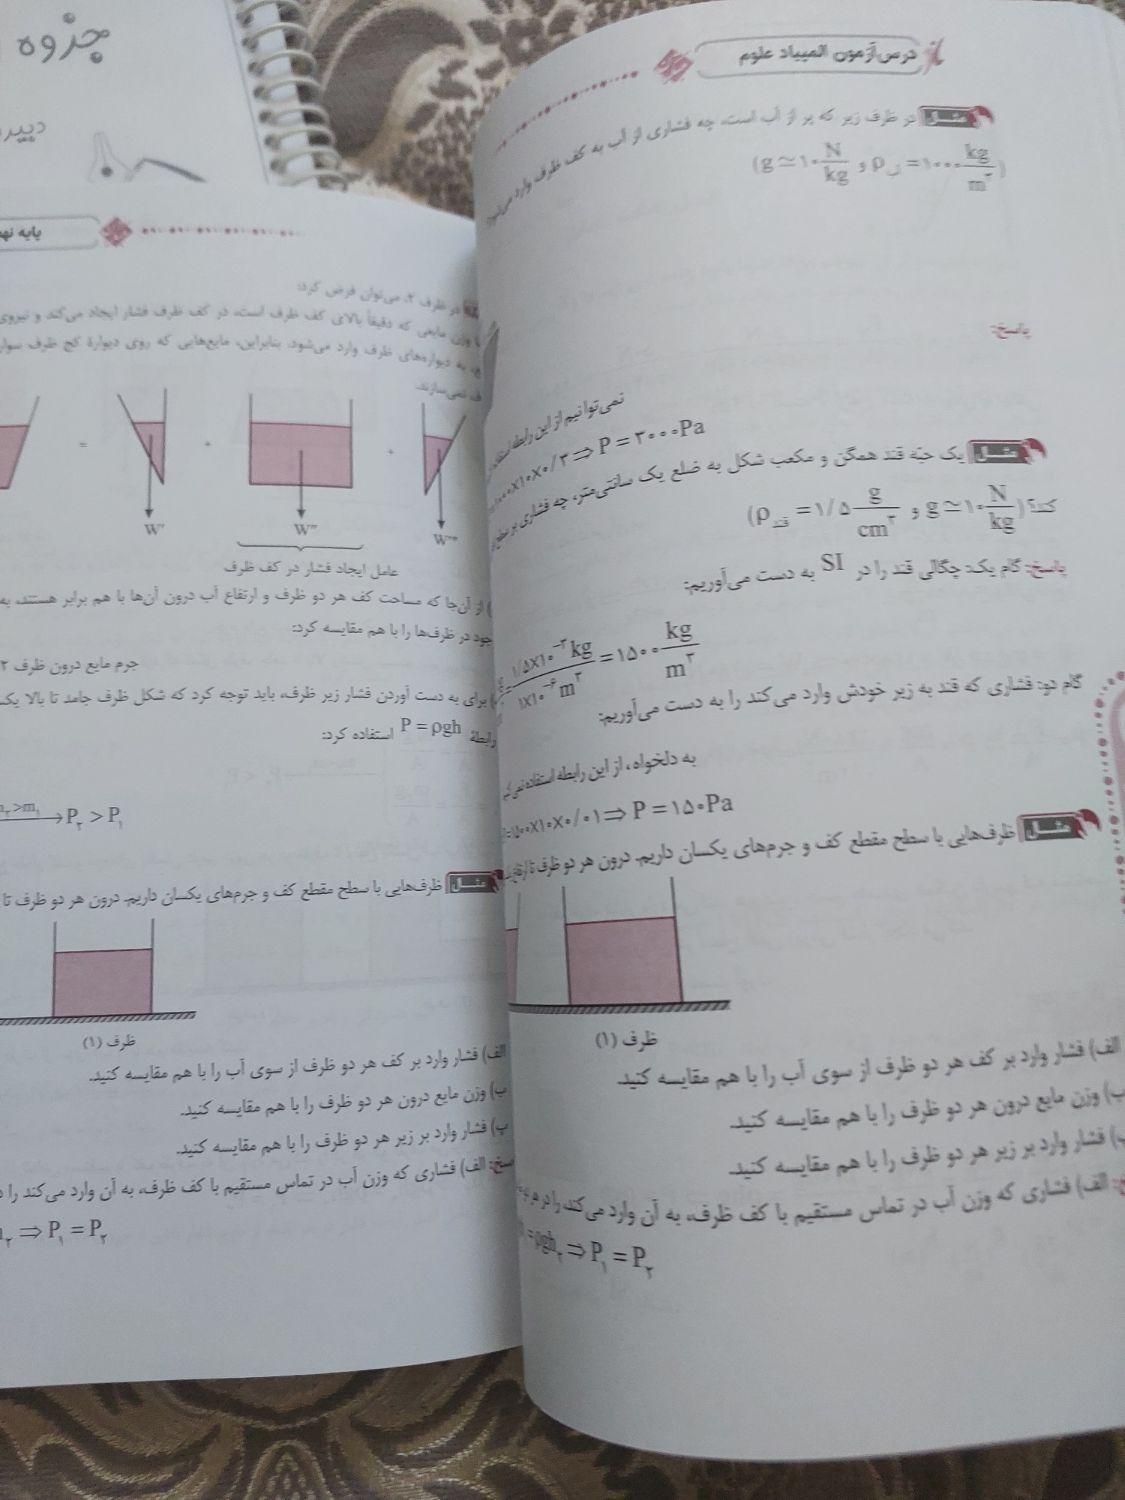 درس‌آزمون المپیاد علوم
مثال در ظرف زیر که پر از آب است، چه فشاری از آب به کف ظرف وارد می‌شود؟
(ρآب = ۱۰۰۰ kg/m³ و g ≃ ۱۰ N/kg)
پاسخ:
نمی‌توانیم از این رابطه استفاده
۱۰×۰/۳ ⇒ P = ۳۰۰۰Pa
مثال یک حبّه قند همگن و مکعب شکل به ضلع یک سانتی‌متر، چه فشاری بر سطح
کند؟ (ρقند = ۱/۵ g/cm³ و g ≃ ۱۰ N/kg)
پاسخ: گام یک: چگالی قند را در SI به دست می‌آوریم:
= ۱/۵×۱۰⁻³ kg / ۱×۱۰⁻⁶ m³ = ۱۵۰۰ kg/m³
گام دو: فشاری که قند به زیر خودش وارد می‌کند را به دست می‌آوریم:
به دلخواه، از این رابطه استفاده نمی‌کنیم
=۱۵۰۰×۱۰×۰/۰۱ ⇒ P = ۱۵۰Pa
مثال ظرف‌هایی با سطح مقطع کف و جرم‌های یکسان داریم. درون هر دو ظرف تا ارتفاع
ظرف (۱)
الف) فشار وارد بر کف هر دو ظرف از سوی آب را با هم مقایسه کنید.
ب) وزن مایع درون هر دو ظرف را با هم مقایسه کنید.
پ) فشار وارد بر زیر هر دو ظرف را با هم مقایسه کنید.
الف) فشاری که وزن آب در تماس مستقیم با کف ظرف، به آن وارد می‌کند، را در هر
= ρgh₂ ⇒ P₁ = P₂
جزوه
دبیر
پایه نهم
در ظرف ۲، می‌توان فرض کرد:
وزن مایعی که دقیقاً بالای کف ظرف است، در کف ظرف فشار ایجاد می‌کند و نیروی
به دیواره‌های ظرف وارد می‌شود. بنابراین، مایع‌هایی که روی دیوارهٔ کج ظرف سوار
نمی‌سازند.
= + +
W′ W″ W‴
عامل ایجاد فشار در کف ظرف
از آن‌جا که مساحت کف هر دو ظرف و ارتفاع آب درون آن‌ها با هم برابر هستند، به
در ظرف‌ها را با هم مقایسه کرد:
جرم مایع درون ظرف ۲
برای به دست آوردن فشار زیر ظرف، باید توجه کرد که شکل ظرف جامد تا بالا یک
رابطهٔ P = ρgh استفاده کرد:
m₂>m₁ → P₂ > P₁
مثال ظرف‌هایی با سطح مقطع کف و جرم‌های یکسان داریم. درون هر دو ظرف تا
ظرف (۱)
الف) فشار وارد بر کف هر دو ظرف از سوی آب را با هم مقایسه کنید.
ب) وزن مایع درون هر دو ظرف را با هم مقایسه کنید.
پ) فشار وارد بر زیر هر دو ظرف را با هم مقایسه کنید.
الف) فشاری که وزن آب در تماس مستقیم با کف ظرف، به آن وارد می‌کند را
⇒ P₁ = P₂